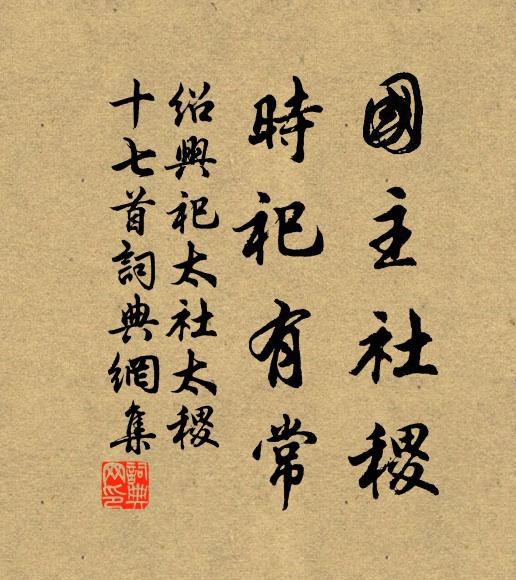 國主社稷
時祀有常
紹興祀太社太稷
十七首詞典網集
詞典網印